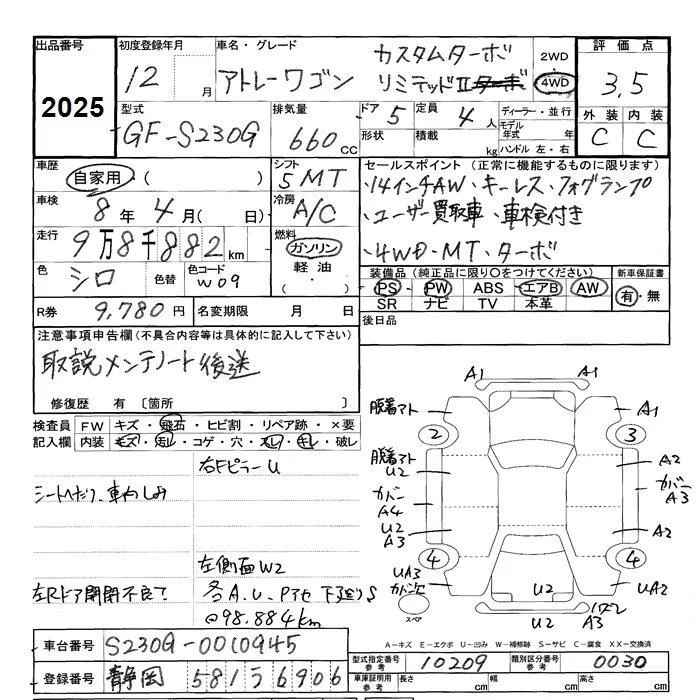 出品番号
2025
初度登録年月
12 月
車名・グレード
カスタムターボ
アトレーワゴン リミテッドII
2WD
4WD
評価点
3.5
外装 内装
C C
型式
GF-S230G
排気量
660 cc
ドア 5
定員 4 人
形状
積載 kg
ディーラー・並行
モデル年式 年
ハンドル 左・右
車歴
自家用 ( )
シフト
5MT
セールスポイント (正常に機能するものに限ります)
・14インチAW・キーレス・フォグランプ
・ユーザー買取車・車検付き
・4WD・MT・ターボ
車検
8 年 4 月 ( 日)
冷房
A/C
走行
9万8千882 km
燃料
ガソリン
軽油
( ・ )
色
シロ
色替
色コード
W09
装備品 (純正品に限り○をつけてください)
PS PW ABS エアB AW
SR ナビ TV 本革
新車保証書
有・無
R券 9,780 円
名変期限 月 日
後日品
注意事項申告欄 (不具合内容等は具体的に記入して下さい)
取説メンテノート後送
修復歴 有 [箇所 ]
検査員記入欄
FW キズ・飛石・ヒビ割・リペア跡・×要
内装 キズ・汚レ・コゲ・穴・スレ・キレ・破レ
右FピラーU
左側面W2
左Rドア開閉不良て
各A.U.
@98.884km
A1 A1
脱着アト A1
2 3
脱着アト A2
U2
カバー カバー
A4 A3
U2 A2
A3
4 4
UA3 UA2
カバー
U2 U2
A3
スペア
A-キズ E-エクボ U-凹み W-補修跡 S-サビ C-腐食 XX-交換済
車台番号 S230G-0010945
登録番号 静岡 581 う 6906
型式指定番号 参考 10209
類別区分番号 参考 0030
車庫証明用 参考
長さ cm 幅 cm 高さ cm